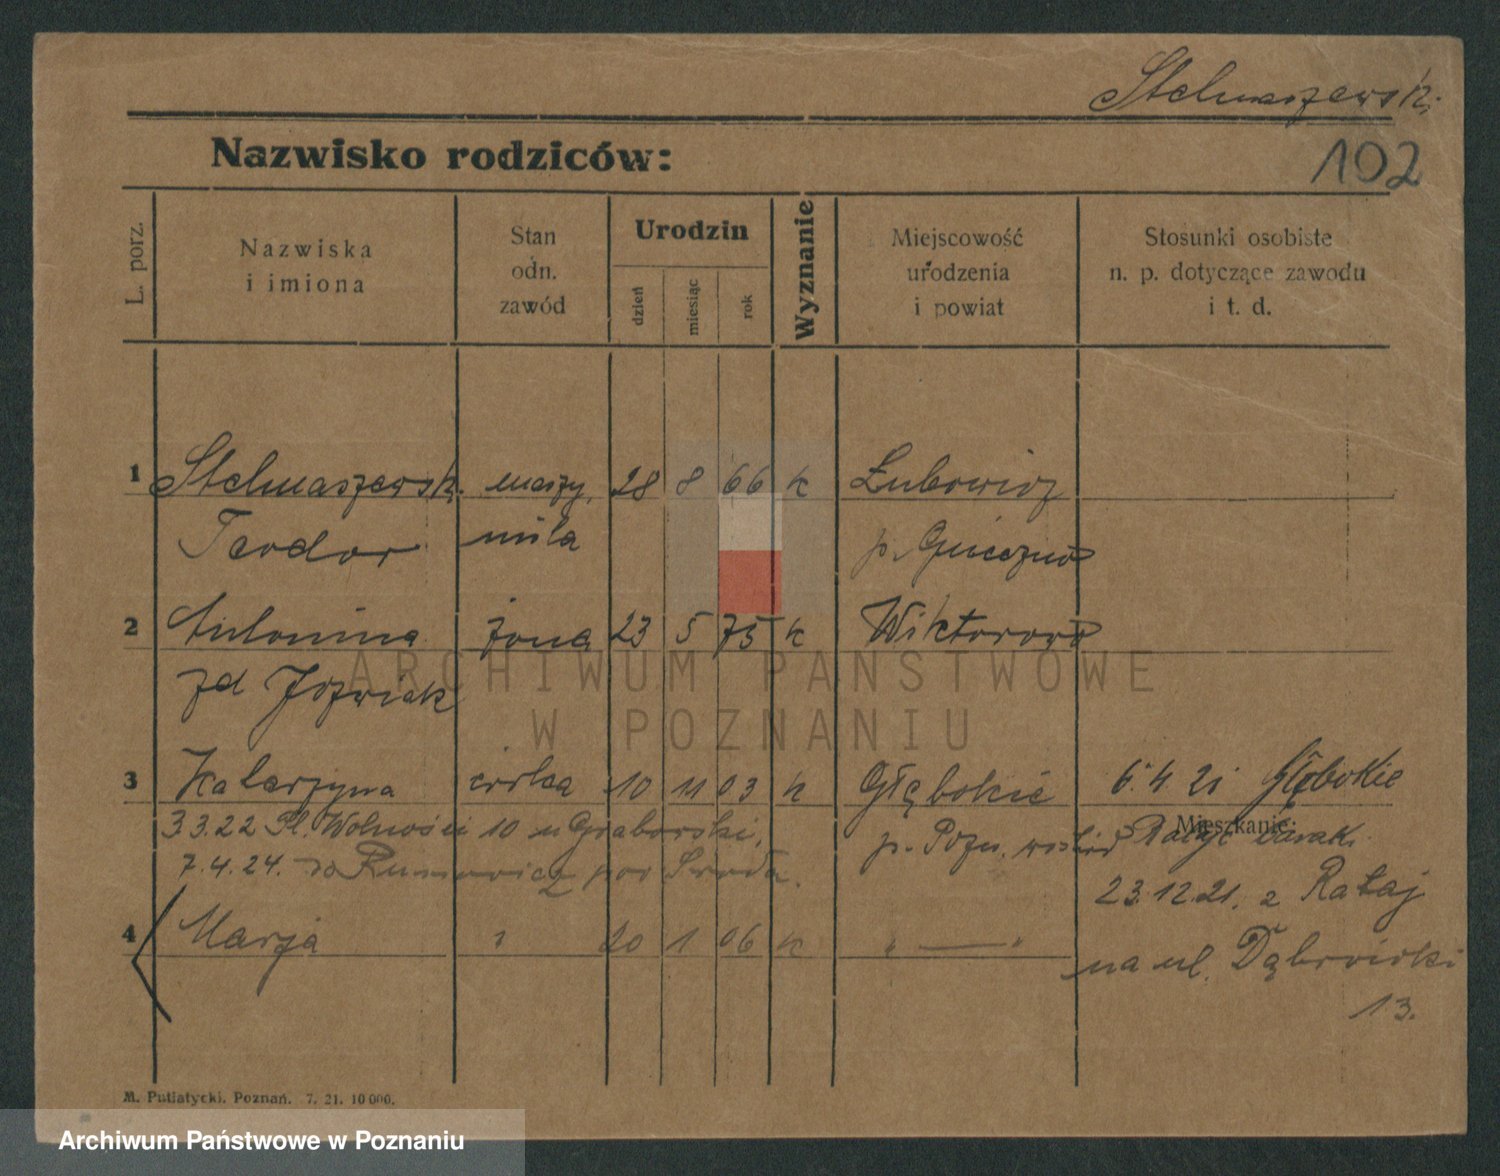 Stelmaszewski
102
Nazwisko rodziców:
L. porz.
Nazwiska
i imiona
Stan
odn.
zawód
Urodzin
dzień
miesiąc
rok
Wyznanie
Miejscowość
urodzenia
i powiat
Stosunki osobiste
n. p. dotyczące zawodu
i t. d.
1 Stelmaszewski maszy, 28 8 66 k
Teodor p. Gniezno
2 Antonina żona 23 5 75 k Wiktorowo
zd Jóźwiak
3 Katarzyna córka 10 11 03 k Głębokie 6.4.21 Głębokie
Mieszkanie:
3 3.22 Pl. Wolności 10 u Graborski,
p. Pozn. wschód
7.4.24. do por Środa.
23.12.21. z Rataj
4 Marja " 20 1 06 k " — "
na ul. Dąbrówki
13.
M. Putiatycki. Poznań. 7. 21. 10 000.
ARCHIWUM PAŃSTWOWE
W POZNANIU
Archiwum Państwowe w Poznaniu